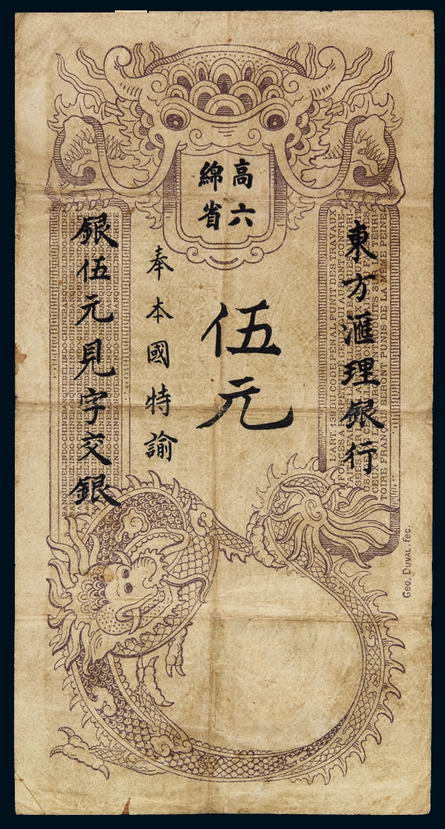 高綿
六省
東方滙理銀行
伍元
奉本國特諭
銀伍元見字交銀
L'ART. 139 DU CODE PENAL PUNIT DES TRAVAUX
TOIRE FRANÇAIS SERONT PUNIS DE LA MEME PEINE
Geo. Duval, fec.